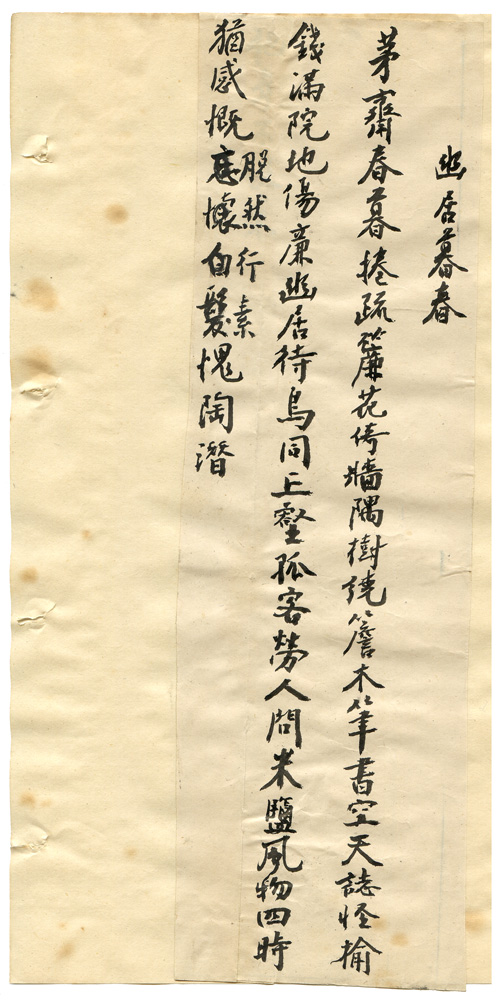 幽居暮春
茅齋春暮捲疏簾花倚牆隅樹繞簷木筆書空天誌怪榆
錢滿院地傷廉幽居待烏同丘壑孤客勞人問米鹽風物四時
猶感慨忘懷白髮愧陶潛
脫然行素